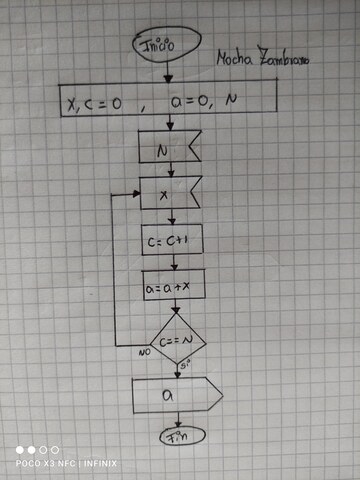 Inicio
Mocha Zambrano
X, C = 0 , a = 0, N
N
X
C = C+1
a = a + X
C == N
NO
Si
a
Fin
POCO X3 NFC | INFINIX